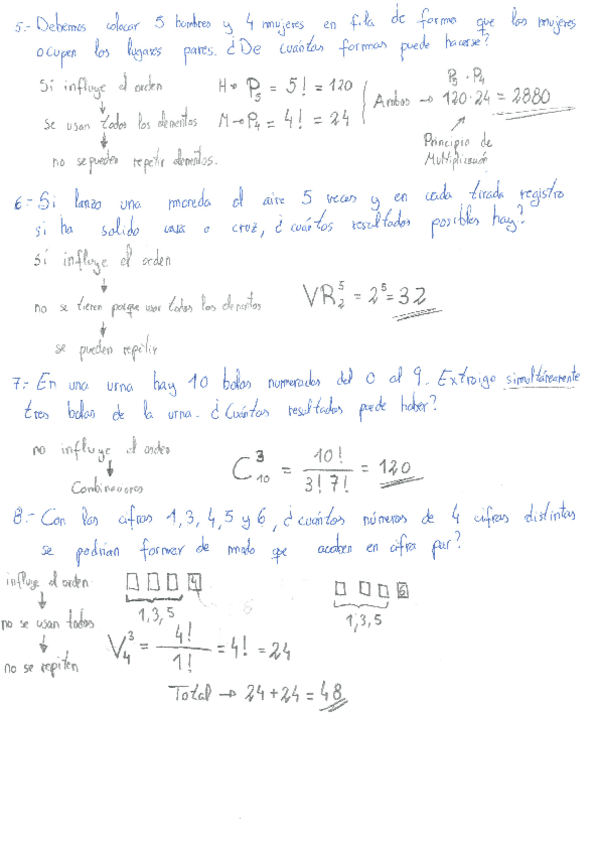 5.- Debemos colocar 5 hombres y 4 mujeres en fila de forma que las mujeres
ocupen los lugares pares. ¿De cuántas formas puede hacerse?
Sí influye el orden
H → P₅ = 5! = 120
se usan todos los elementos
M → P₄ = 4! = 24
no se pueden repetir elementos.
Ambos → 120·24 = 2880
P₅ · P₄
Principio de
Multiplicación
6.- Si lanzo una moneda al aire 5 veces y en cada tirada registro
si ha salido cara o cruz, ¿cuántos resultados posibles hay?
Sí influye el orden
no se tienen porque usar todos los elementos
se pueden repetir
VR₂⁵ = 2⁵ = 32
7.- En una urna hay 10 bolas numeradas del 0 al 9. Extraigo simultáneamente
tres bolas de la urna. ¿Cuántos resultados puede haber?
no influye el orden
Combinaciones
C₁₀³ = 10! / 3! 7! = 120
8.- Con las cifras 1, 3, 4, 5 y 6, ¿cuántos números de 4 cifras distintas
se podrían formar de modo que acaben en cifra par?
influye el orden
no se usan todos
no se repiten
4
1, 3, 5
6
1, 3, 5
V₄³ = 4! / 1! = 4! = 24
Total → 24 + 24 = 48